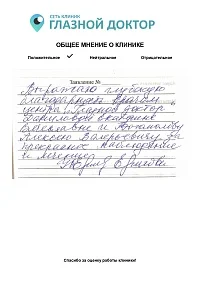 СЕТЬ КЛИНИК
ГЛАЗНОЙ ДОКТОР
ОБЩЕЕ МНЕНИЕ О КЛИНИКЕ
Положительное ✓ Нейтральное Отрицательное
Заявление №
Выражаю глубокую
благодарность врачам
центра "Глазной доктор"
Даниловой Екатерине
Вячеславне и
Алексею Валерьевичу за
прекрасное наблюдение
и лечение
Спасибо за оценку работы клиники!